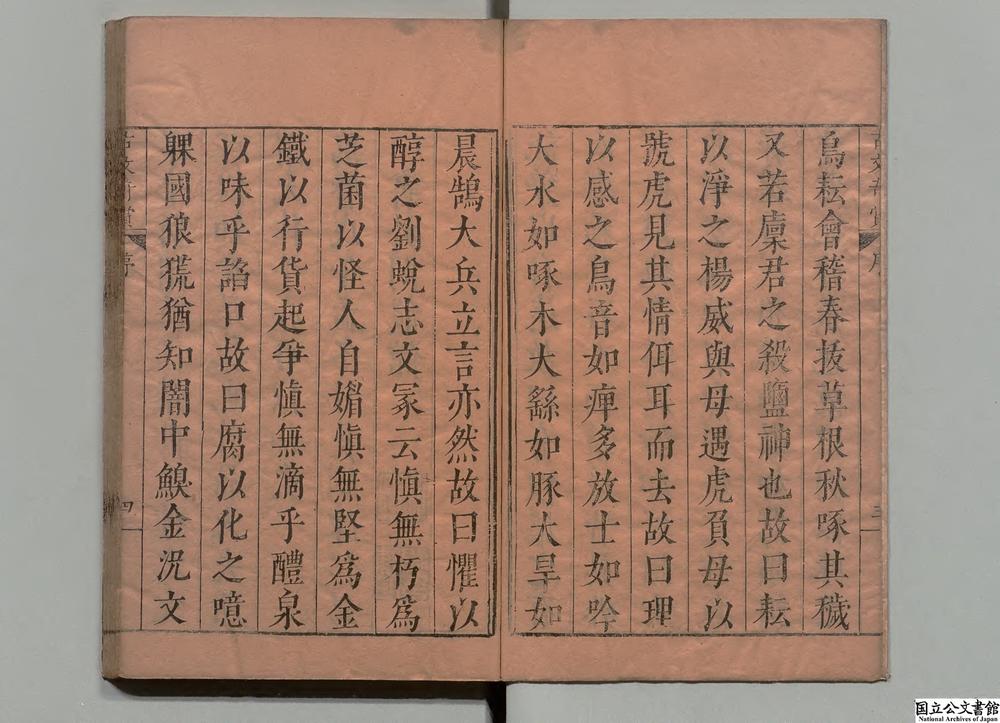 鳥耘會稽春拔草根秋啄其穢
又若廩君之殺鹽神也故曰耘
以淨之楊威與母遇虎負母以
號虎見其情佴耳而去故曰理
以感之鳥音如痺多放士如吟
大水如啄木大繇如豚大旱如
晨鵠大兵立言亦然故曰懼以
醇之劉蛻志文冢云慎無朽爲
芝菌以怪人自媚慎無堅爲金
鐵以行貨起爭慎無滴乎醴泉
以味乎諂口故曰腐以化之噫
躶國狼𤝯猶知闇中齅金況文
序
四
国立公文書館
National Archives of Japan